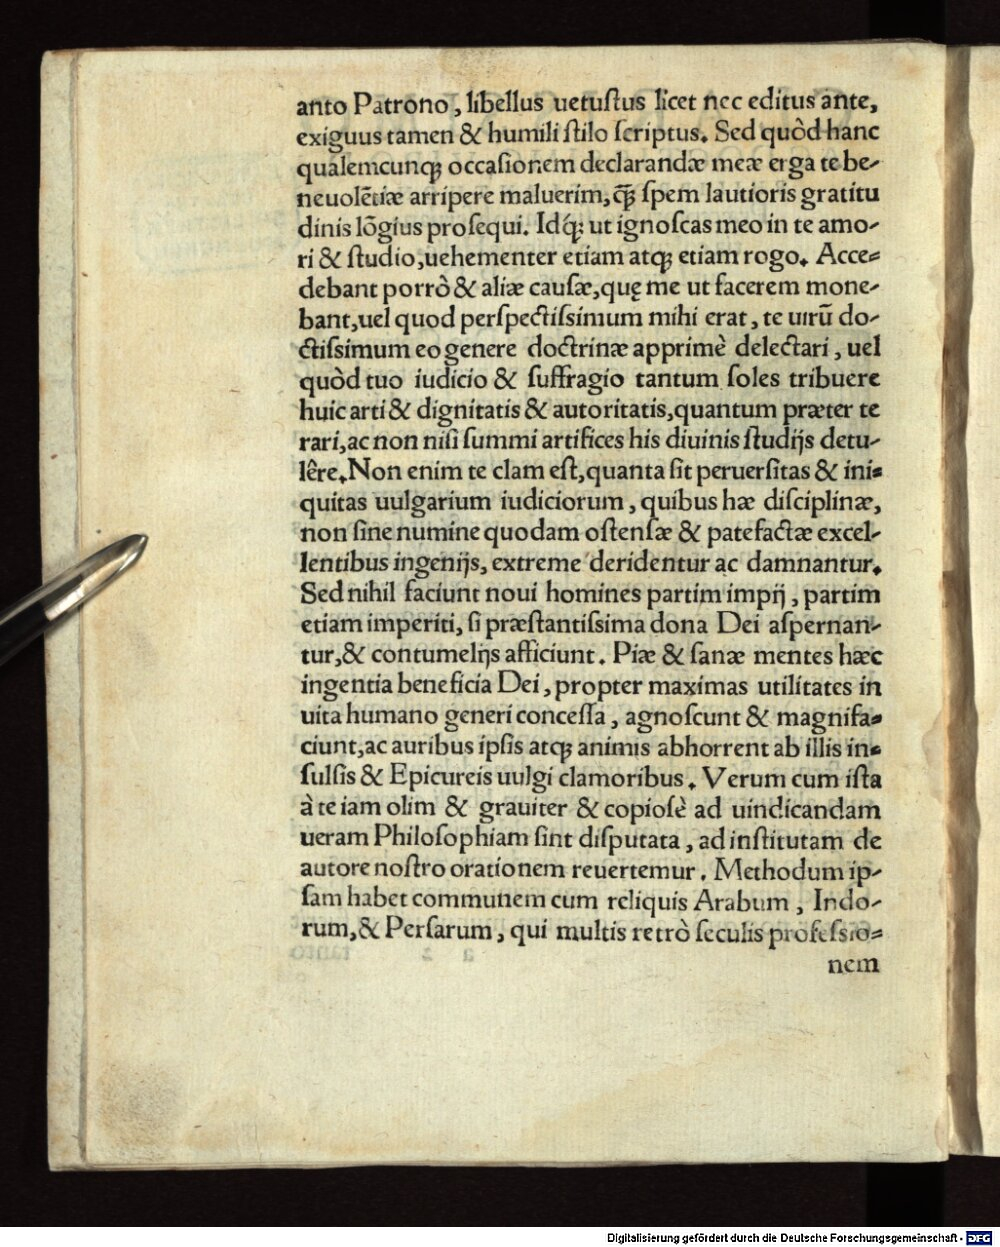 anto Patrono, libellus uetuſtus licet nec editus ante,
exiguus tamen & humili ſtilo ſcriptus. Sed quòd hanc
qualemcunqꝫ occaſionem declarandæ meæ erga te be-
neuolẽtiæ arripere maluerim, q̃ꝫ ſpem lautioris gratitu
dinis lõgius proſequi. Idq́ꝫ ut ignoſcas meo in te amo-
ri & ſtudio, uehementer etiam atqꝫ etiam rogo. Acce-
debant porrò & aliæ cauſæ, quę me ut facerem mone-
bant, uel quod perſpectiſsimum mihi erat, te uirũ do-
ctiſsimum eo genere doctrinæ apprimè delectari, uel
quòd tuo iudicio & ſuffragio tantum ſoles tribuere
huic arti & dignitatis & autoritatis, quantum præter te
rari, ac non niſi ſummi artifices his diuinis ſtudijs detu-
lêre. Non enim te clam eſt, quanta ſit peruerſitas & ini-
quitas uulgarium iudiciorum, quibus hæ diſciplinæ,
non ſine numine quodam oſtenſæ & patefactæ excel-
lentibus ingenijs, extreme deridentur ac damnantur.
Sed nihil faciunt noui homines partim impij, partim
etiam imperiti, ſi præſtantiſsima dona Dei aſpernan-
tur, & contumelijs afficiunt. Piæ & ſanæ mentes hæc
ingentia beneficia Dei, propter maximas utilitates in
uita humano generi conceſſa, agnoſcunt & magnifa-
ciunt, ac auribus ipſis atqꝫ animis abhorrent ab illis in-
ſulſis & Epicureis uulgi clamoribus. Verum cum iſta
à te iam olim & grauiter & copioſè ad uindicandam
ueram Philoſophiam ſint diſputata, ad inſtitutam de
autore noſtro orationem reuertemur. Methodum ip-
ſam habet communem cum reliquis Arabum, Indo-
rum, & Perſarum, qui multis retrò ſeculis profeſsio-
nem
Digitalisierung gefördert durch die Deutsche Forschungsgemeinschaft - DFG